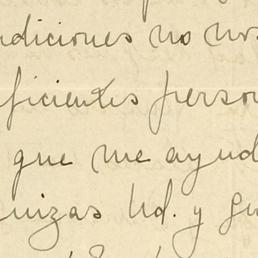 ndiciones no nos
ficientes person
que me ayud
nizas Ud. y gu